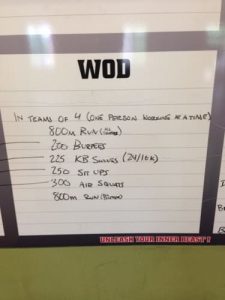 WOD
IN TEAMS OF 4 (ONE PERSON WORKING AT A TIME)
800M RUN
200 BURPEES
225 KB SWINGS (24/16K)
250 SIT UPS
300 AIR SQUATS
800M RUN
UNLEASH YOUR INNER BEAST!